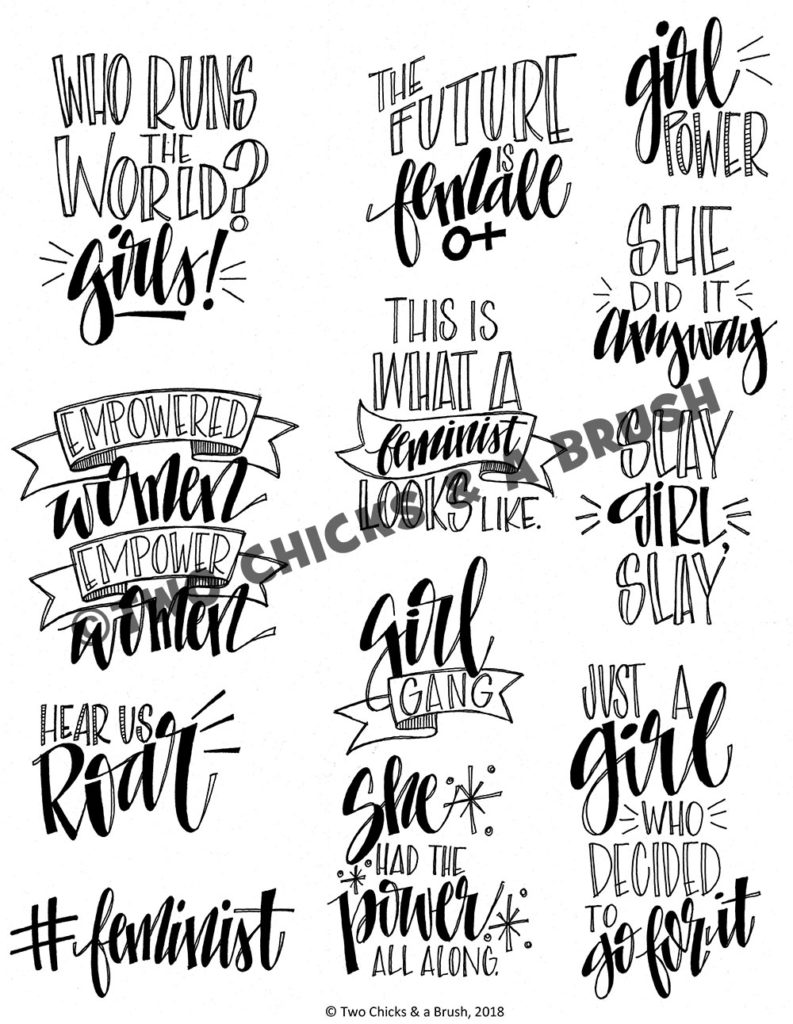 WHO RUNS
THE
WORLD?
girls!
EMPOWERED
women
EMPOWER
women
HEAR US
Roar
#feminist
THE
FUTURE
IS
female
THIS IS
WHAT A
feminist
LOOKS LIKE.
girl
GANG
She
HAD THE
power
ALL ALONG.
girl
POWER
SHE
DID IT
anyway
SLAY
GIRL,
SLAY
JUST A
girl
WHO
DECIDED
TO
go for it
© TWO CHICKS & A BRUSH
© Two Chicks & a Brush, 2018